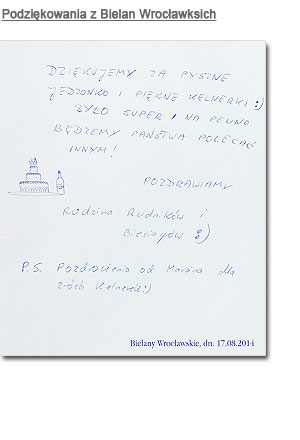 Podziękowania z Bielan Wrocławksich
DZIĘKUJEMY ZA PYSZNE
JEDZONKO I PIĘKNE KELNERKI :)
BYŁO SUPER I NA PEWNO
BĘDZIEMY PAŃSTWA POLECAĆ
INNYM!
POZDRAWIAMY
Rodzina Rudników i
Biesiagów :)
P.S. Pozdrowienia od Marcina dla
Kelnerek :)
Bielany Wrocławskie, dn. 17.08.2014